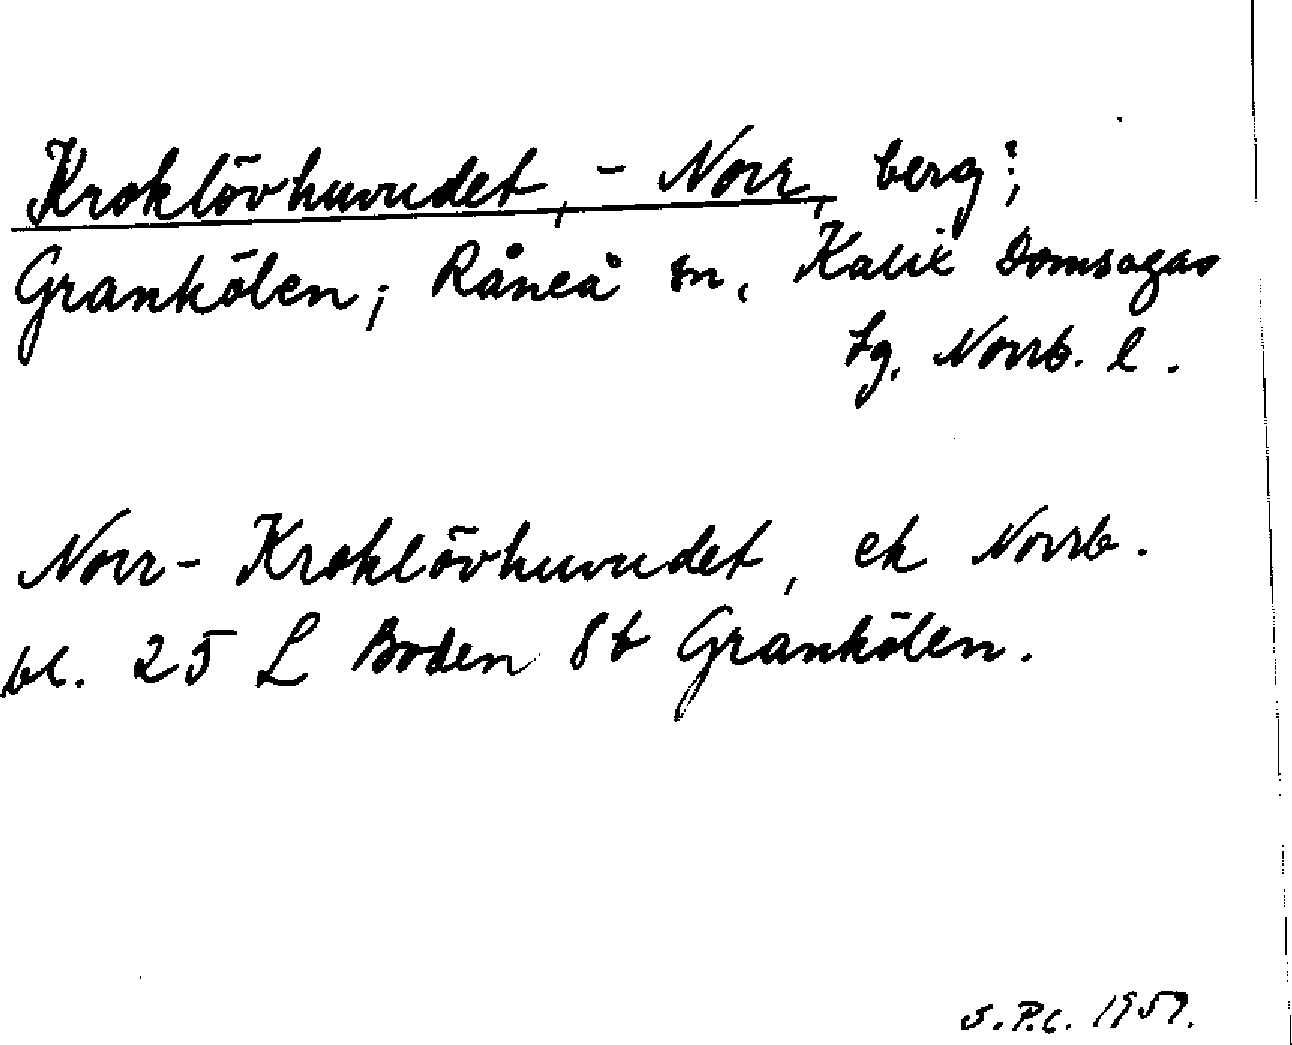 Kroklövhuvudet, - Norr, berg;
Grankölen; Råneå sn, Kalix Domsagas
tg. Norrb. l.
Norr-Kroklövhuvudet, ek Norrb.
bl. 25 L Boden 8b Grankölen.
S.P.C. 1959.